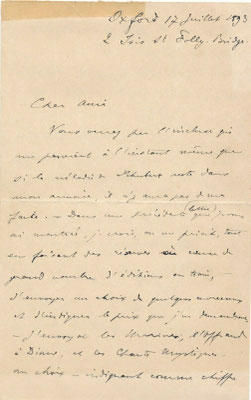 Oxford 17 Juillet 1893
2 Isis St Folly Bridge.
Cher Ami
Vous verrez par l'inclus qui
me parvient à l'instant même que
si la mélodie de Schubert reste dans
mon armoire, il n'y aura pas de ma
faute. — Dans une précédente que je vous
(lettre)
ai montrée, je crois, on me priait, tout
en faisant des réserves à cause du
grand nombre d'éditions en train, —
d'envoyer un choix de quelques morceaux
et d'indiquer le prix que j'en demanderais
— j'envoyai les l'Offrande
à Diane, et les Chants Mystiques.
au choix — indiquant comme chiffre